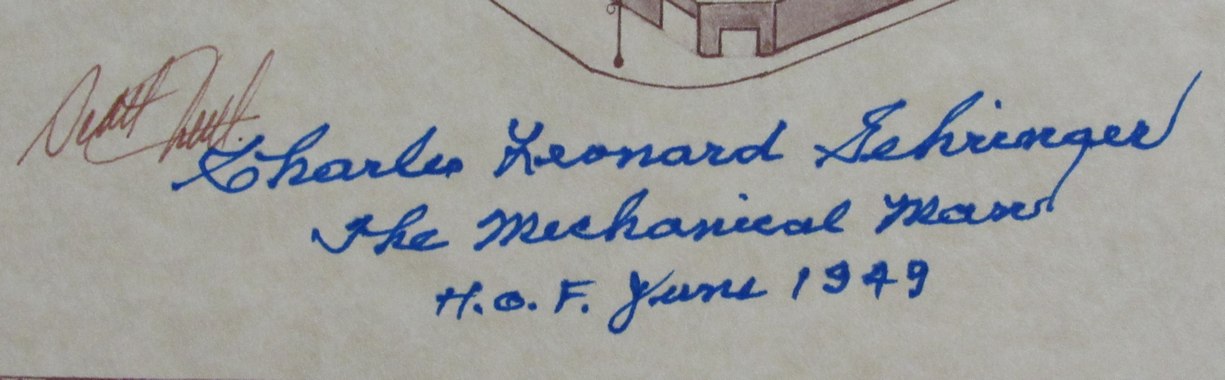 Charles Leonard Gehringer
The Mechanical Man
H.O.F. June 1949